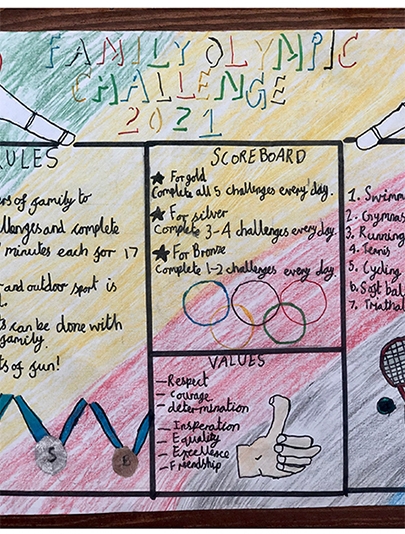 FAMILY OLYMPIC
CHALLENGE
2021
RULES
ers of family to
allenges and complete
minutes each for 17
r and outdoor sport is
d.
ts can be done with
family.
ts of fun!
S
B
SCOREBOARD
For gold
Complete all 5 challenges every day.
For silver
Complete 3-4 challenges every day.
For Bronze
Complete 1-2 challenges every day
VALUES
- Respect
- courage
- determination
- Insperation
- Equality
- Excellence
- Friendship
1. Swimm
2. Gymnas
3. Running
4. Tennis
5. Cycling
6. Soft bal
7. Triathal